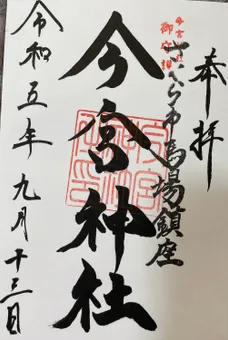 奉拝
さくら市馬場鎮座
今宮神社
令和五年九月十三日